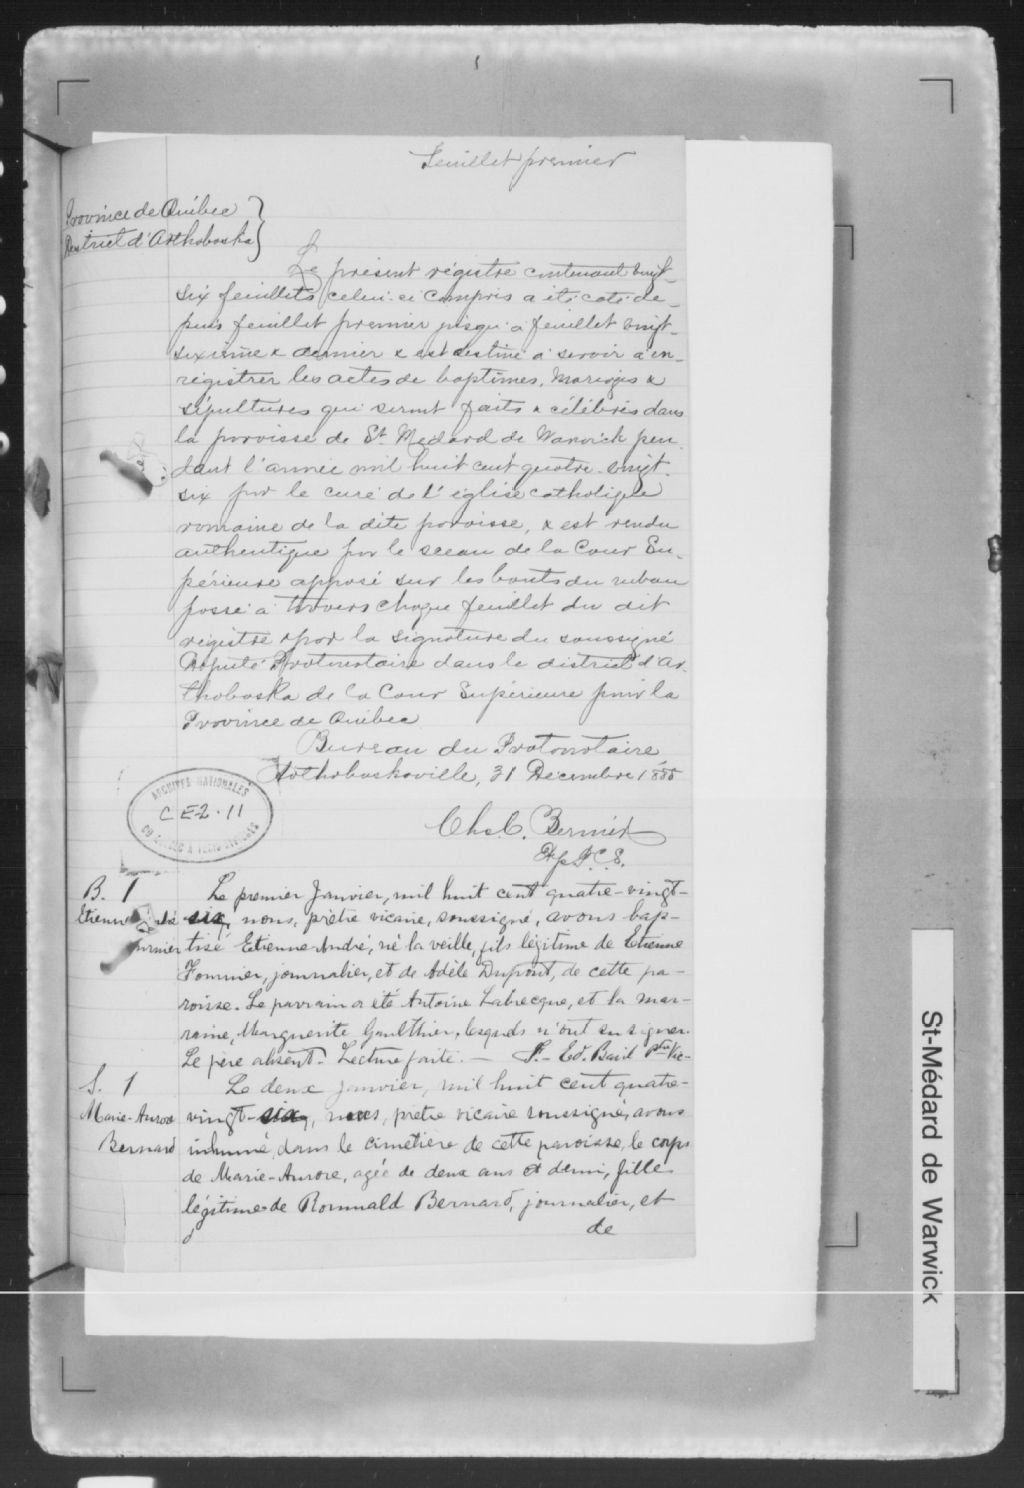 Feuillet premier
Province de Québec
District d'Arthabaska
Le présent régistre contenant vingt-
six feuillets celui-ci compris a été coté de-
puis feuillet premier jusqu'à feuillet vingt-
sixième & dernier & est destiné à servir à en-
registrer les actes de baptêmes, mariages &
sépultures qui seront faits & célébrés dans
la paroisse de St. Médard de Warwick pen-
dant l'année mil huit cent quatre-vingt-
six par le curé de l'église catholique
romaine de la dite paroisse, & est rendu
authentique par le sceau de la Cour Su-
périeure apposé sur les bouts du ruban
passé à travers chaque feuillet du dit
régistre & par la signature du soussigné
Député Protonotaire dans le district d'Ar-
thabaska de la Cour Supérieure pour la
Province de Québec
Bureau du Protonotaire
Arthabaskaville, 31 Décembre 1885
Chs. C. Bernier
ARCHIVES NATIONALES
CE2-11
DU QUÉBEC À TROIS-RIVIÈRES
B. 1
Etienne
Le premier Janvier, mil huit cent quatre-vingt-
six, nous, prêtre vicaire, soussigné, avons bap-
tisé Etienne-André, né la veille, fils légitime de Etienne
Fournier, journalier, et de Adèle Dupont, de cette pa-
roisse. Le parrain a été Antoine Labrecque, et la mar-
raine, Marguerite Gaulthier, lesquels n'ont su signer.
Le père absent. Lecture faite. — Ptre Vic-
S. 1
Marie-Aurore
Bernard
Le deux janvier, mil huit cent quatre-
vingt-six, nous, prêtre vicaire soussigné, avons
inhumé, dans le cimetière de cette paroisse, le corps
de Marie-Aurore, agée de deux ans et demi, fille
légitime de Romuald Bernard, journalier, et
de
St-Médard de Warwick